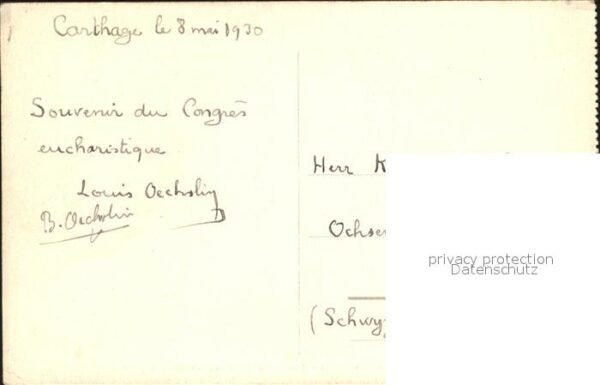 Carthage le 8 mai 1930
Souvenir du Congrès
eucharistique
Louis Oechslin
B. Oechslin
Herr K
Ochse
(Schwy
privacy protection
Datenschutz